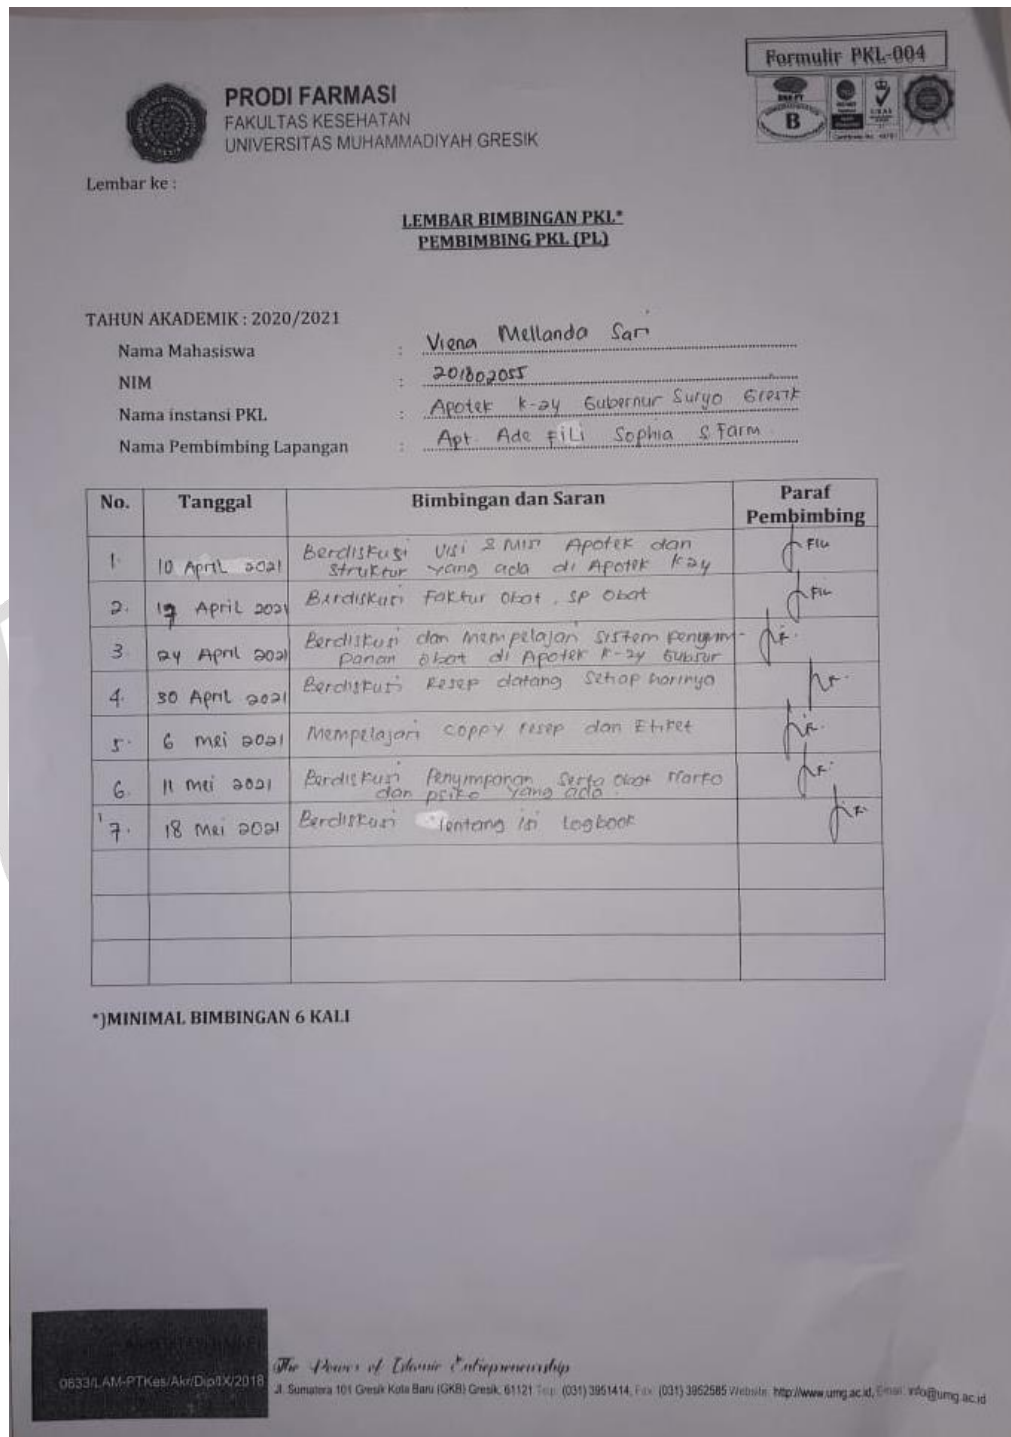 Formulir PKL-004
PRODI FARMASI
FAKULTAS KESEHATAN
UNIVERSITAS MUHAMMADIYAH GRESIK
B
Lembar ke :
LEMBAR BIMBINGAN PKL*
PEMBIMBING PKL (PL)
TAHUN AKADEMIK : 2020/2021
Nama Mahasiswa : Viena Mellanda Sari
NIM : 201802055
Nama instansi PKL : Apotek K-24 Gubernur Suryo Gresik
Nama Pembimbing Lapangan : Apt. Ade Fili Sophia S. Farm
No. Tanggal Bimbingan dan Saran Paraf Pembimbing
1. 10 April 2021 Berdiskusi Visi & Misi Apotek dan
struktur yang ada di Apotek K24
2. 17 April 2021 Berdiskusi Faktur Obat, SP Obat
3 24 April 2021 Berdiskusi dan mempelajari sistem penyim-
panan obat di Apotek K-24 Gubsur
4. 30 April 2021 Berdiskusi Resep datang setiap harinya
5. 6 Mei 2021 Mempelajari coppy resep dan Etiket
6. 11 Mei 2021 Berdiskusi Penyimpanan serta Obat Narko
dan psiko yang ada.
7. 18 Mei 2021 Berdiskusi Tentang isi Logbook
*)MINIMAL BIMBINGAN 6 KALI
0833/LAM-PTKes/Akr/Dip/IX/2018
The Power of Islamic Entrepreneurship
Jl. Sumatera 101 Gresik Kota Baru (GKB) Gresik, 61121 Telp. (031) 3951414, Fax. (031) 3952585 Website: http://www.umg.ac.id, Email: info@umg.ac.id